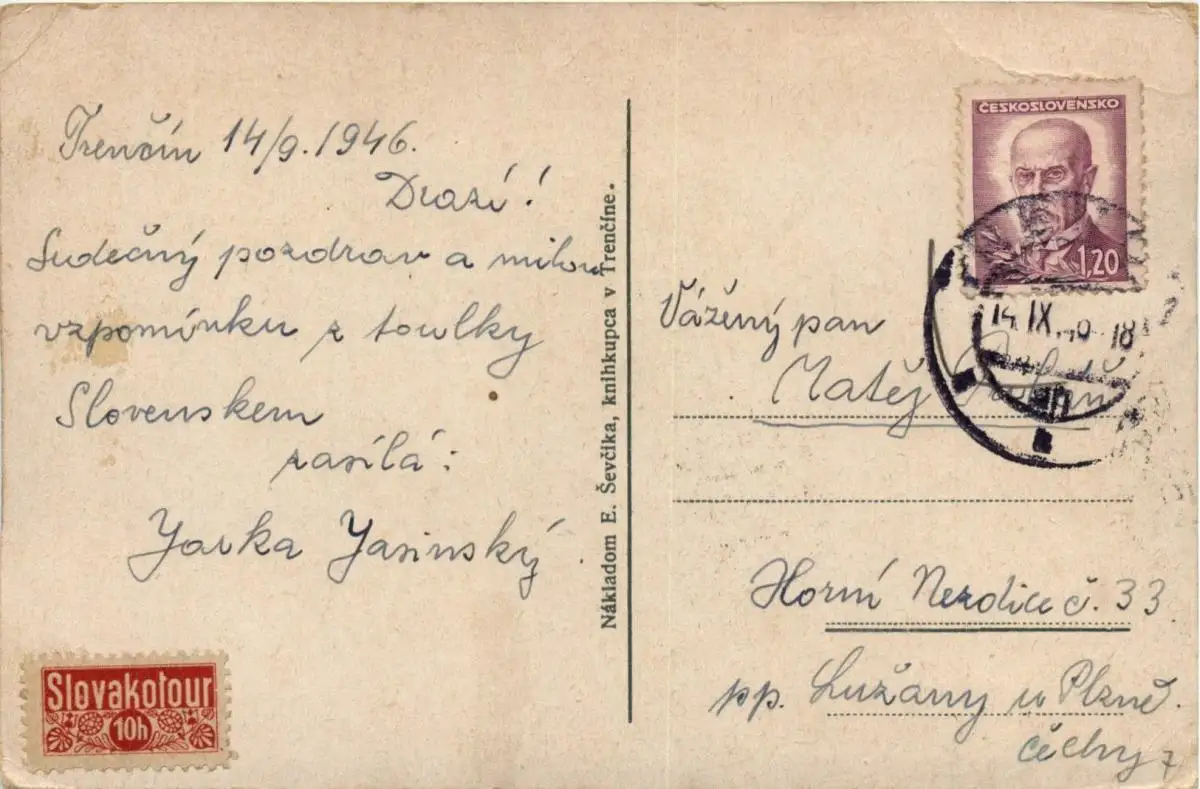 Trenčín 14/9.1946.
Drazí!
Srdečný pozdrav a milou
vzpomínku z toulky
Slovenskem
zasílá:
Jarka Jasinský
Slovakotour
10h
Nákladom E. Ševčíka, knihkupca v Trenčíne.
ČESKOSLOVENSKO
1,20
14.IX.46-18
Vážený pan
Matěj
Horní Nezdice č. 33
pp. Lužany u Plzně.
Čechy